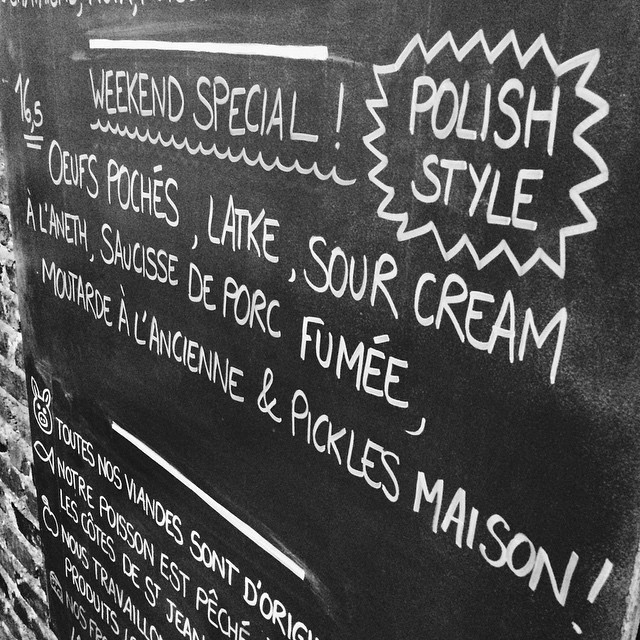 WEEKEND SPECIAL !
POLISH
STYLE
16,5
OEUFS POCHÉS, LATKE, SOUR CREAM
À L'ANETH, SAUCISSE DE PORC FUMÉE,
MOUTARDE À L'ANCIENNE & PICKLES MAISON !
TOUTES NOS VIANDES SONT D'ORIGI
NOTRE POISSON EST PÊCHÉ
LES CÔTES DE ST JEAN
NOUS TRAVAILLO
PRODUITS
NOS